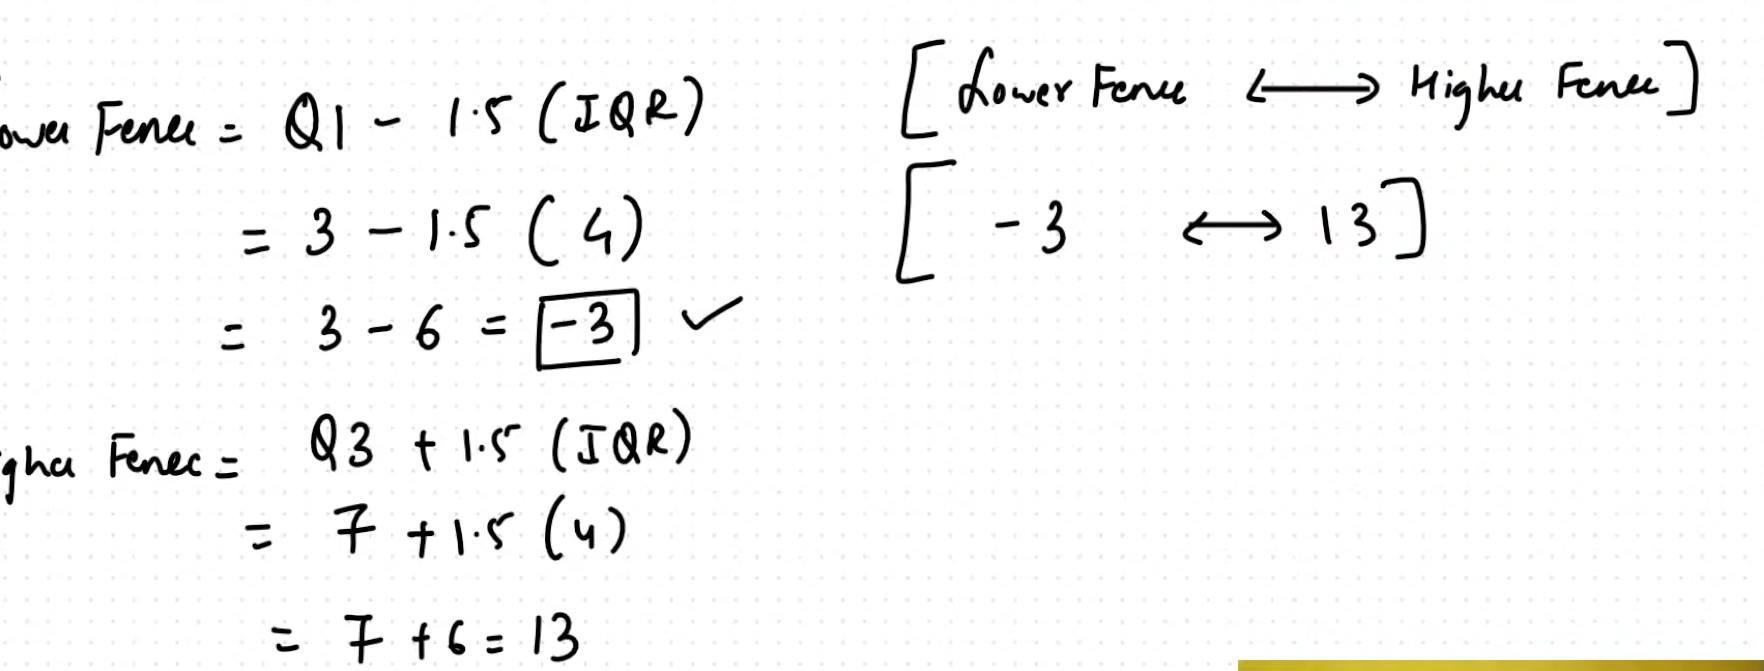 ower Fence = Q1 - 1.5 (IQR)
= 3 - 1.5 (4)
= 3 - 6 = -3 ✓
gher Fence = Q3 + 1.5 (IQR)
= 7 + 1.5 (4)
= 7 + 6 = 13
[Lower Fence ⟷ Higher Fence]
[-3 ⟷ 13]